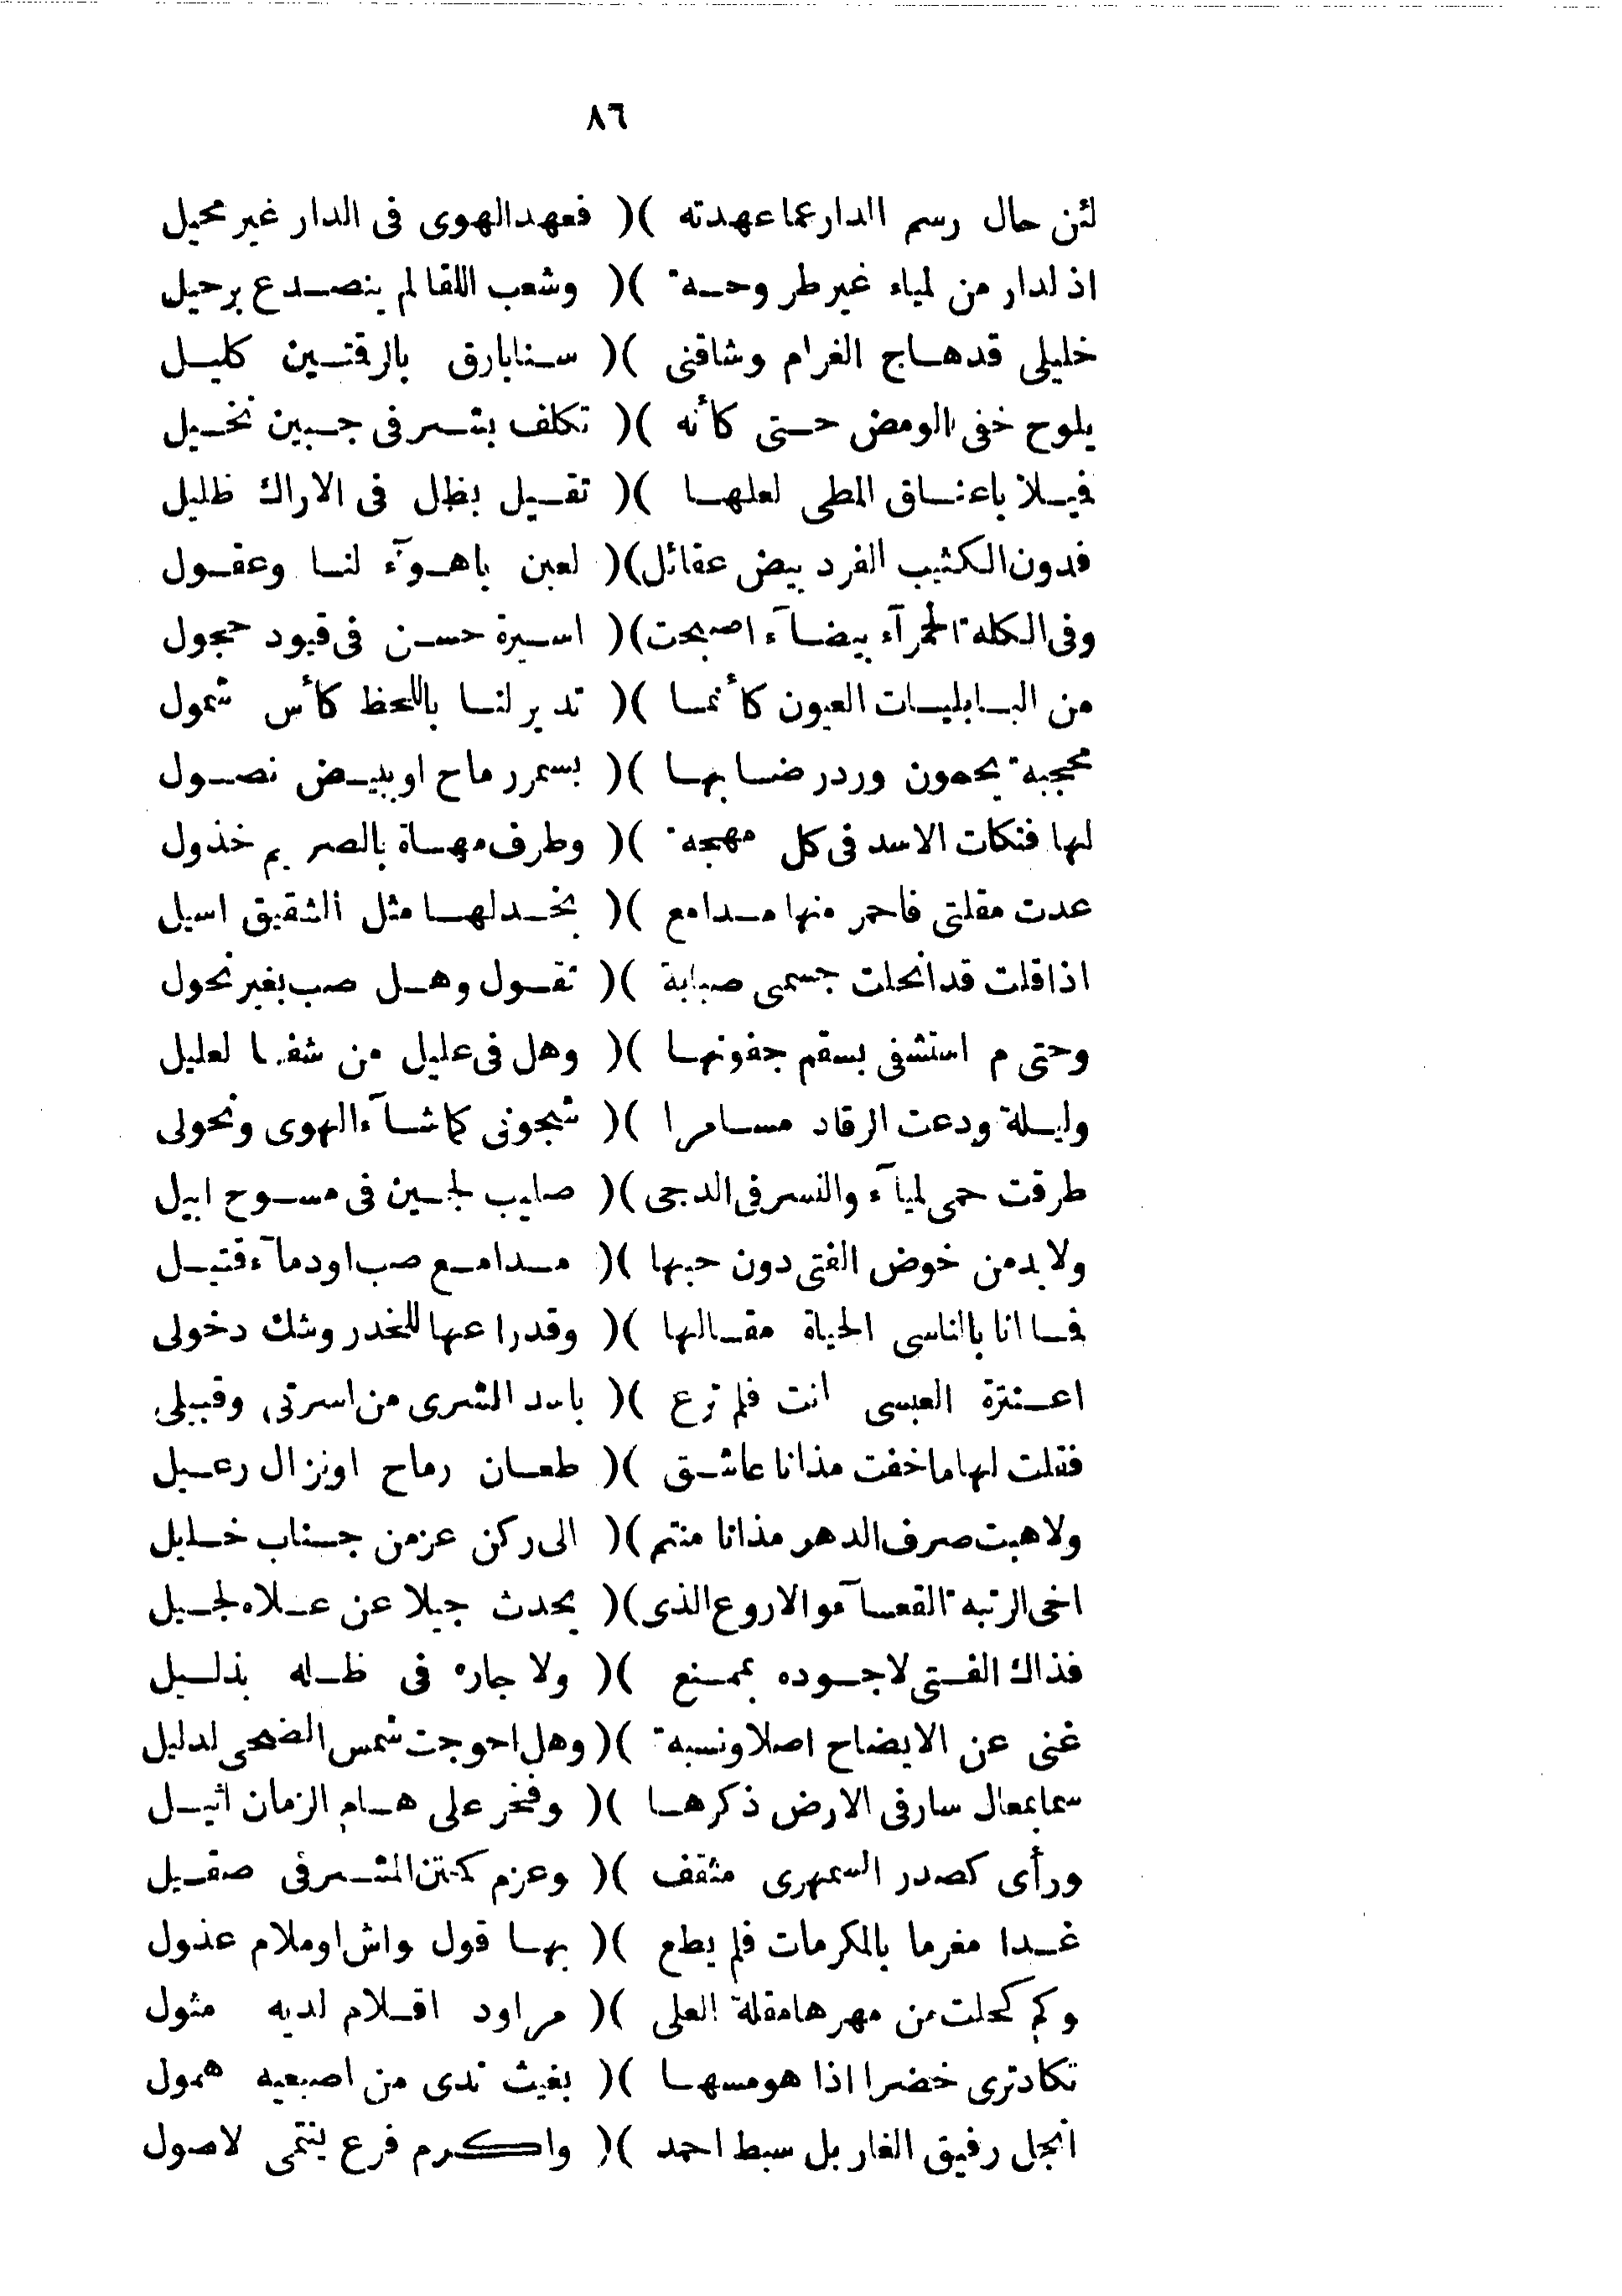 ٨٦
لئن حال رسم الدار عما عهدته )( فعهد الهوى فى الدار غير محيل
اذ لدار من لمياء غير طروحة )( وشعب اللقا لم ينصدع برحيل
خليلى قد هاج الغرام وشاقنى )( سنا بارق بالرقتين كليل
يلوح خفى الومض حتى كأنه )( تكلف بشر فى جبين نخيل
فيلا باعناق المطى لعلها )( تقيل بظل فى الاراك ظليل
فدون الكثيب الفرد بيض عقائل )( لعبن باهوآء لنا وعقول
وفى الكلة الحمرآء بيضآء اصبحت )( اسيرة حسن فى قيود حجول
من البابليات العيون كأنما )( تدير لنا باللحظ كأس شمول
محجبة يحمون ورد رضابها )( بسمر رماح او ببيض نصول
لها فتكات الاسد فى كل مهجة )( وطرف مهاة بالصريم خذول
عدت مقلتى فاحمر منها مدامع )( بخد لها مثل الشقيق اسيل
اذا قلت قد انحلت جسمى صبابة )( تقول وهل صب بغير نحول
وحتى م استشفى بسقم جفونها )( وهل فى عليل من شفا لعليل
وليلة ودعت الرقاد مسامرا )( شجونى كما شآء الهوى ونحولى
طرقت حمى لميآء والنسر فى الدجى )( صليب لجين فى مسوح ابيل
ولا بد من خوض الفتى دون حبها )( مدامع صب او دمآء قتيل
فما انا بالناسى الحياة مقالها )( وقد راعها للخدر وشك دخولى
اعنترة العبسى انت فلم ترع )( باسد الشرى من اسرتى وقبيلى
فقلت لها ما خفت مذ انا عاشق )( طعان رماح او نزال رعيل
ولا هبت صرف الدهر مذ انا منتم )( الى ركن عز من جناب خليل
اخى الرتبة القعسآء والاروع الذى )( يحدث جيلا عن علاه لجيل
فذاك الفتى لا جوده بممنع )( ولا جاره فى ظله بذليل
غنى عن الايضاح اصلا ونسبة )( وهل احوجت شمس الضحى لدليل
سما بمعال سار فى الارض ذكرها )( وفخر على هام الزمان اثيل
ورأى كصدر السمهرى مثقف )( وعزم كمتن المشرفى صقيل
غدا مغرما بالمكرمات فلم يطع )( بها قول واش او ملام عذول
وكم كحلت من مهرها مقلة العلى )( مراود اقلام لديه مثول
تكاد ترى خضرا اذا هو مسها )( بغيث ندى من اصبعيه همول
انجل رفيق الغار بل سبط احمد )( واكرم فرع ينتمى لاصول